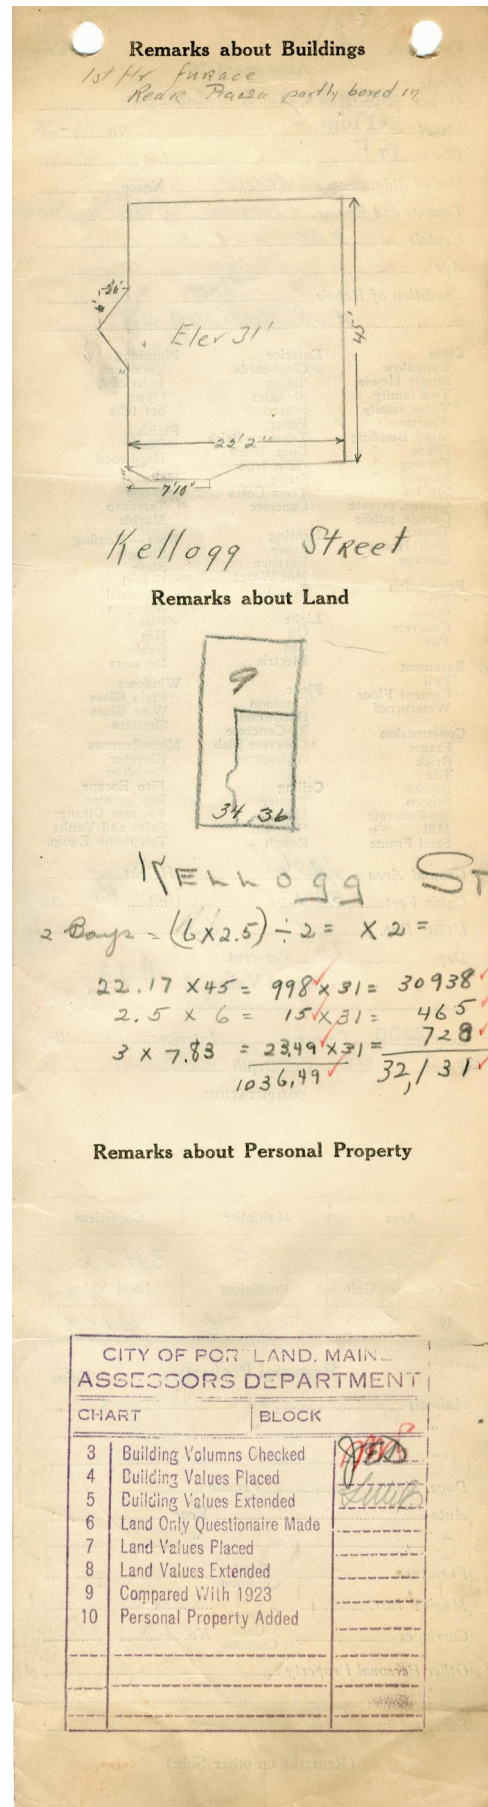 Remarks about Buildings
1st Flr furnace
Rear Piazza partly boxed in
2'6"
6'
Elev 31'
45'
22'2"
1"
7'10"
Kellogg Street
Remarks about Land
9
34 36
KELLOGG ST
2 Bays = (6 x 2.5) ÷ 2 = x 2 =
22.17 x 45 = 998 x 31 = 30938
2.5 x 6 = 15 x 31 = 465
3 x 7.83 = 23.49 x 31 = 728
1036,49 32,131
Remarks about Personal Property
CITY OF PORTLAND, MAINE
ASSESSORS DEPARTMENT
CHART BLOCK
3 Building Volumns Checked
4 Building Values Placed
5 Building Values Extended
6 Land Only Questionaire Made
7 Land Values Placed
8 Land Values Extended
9 Compared With 1923
10 Personal Property Added